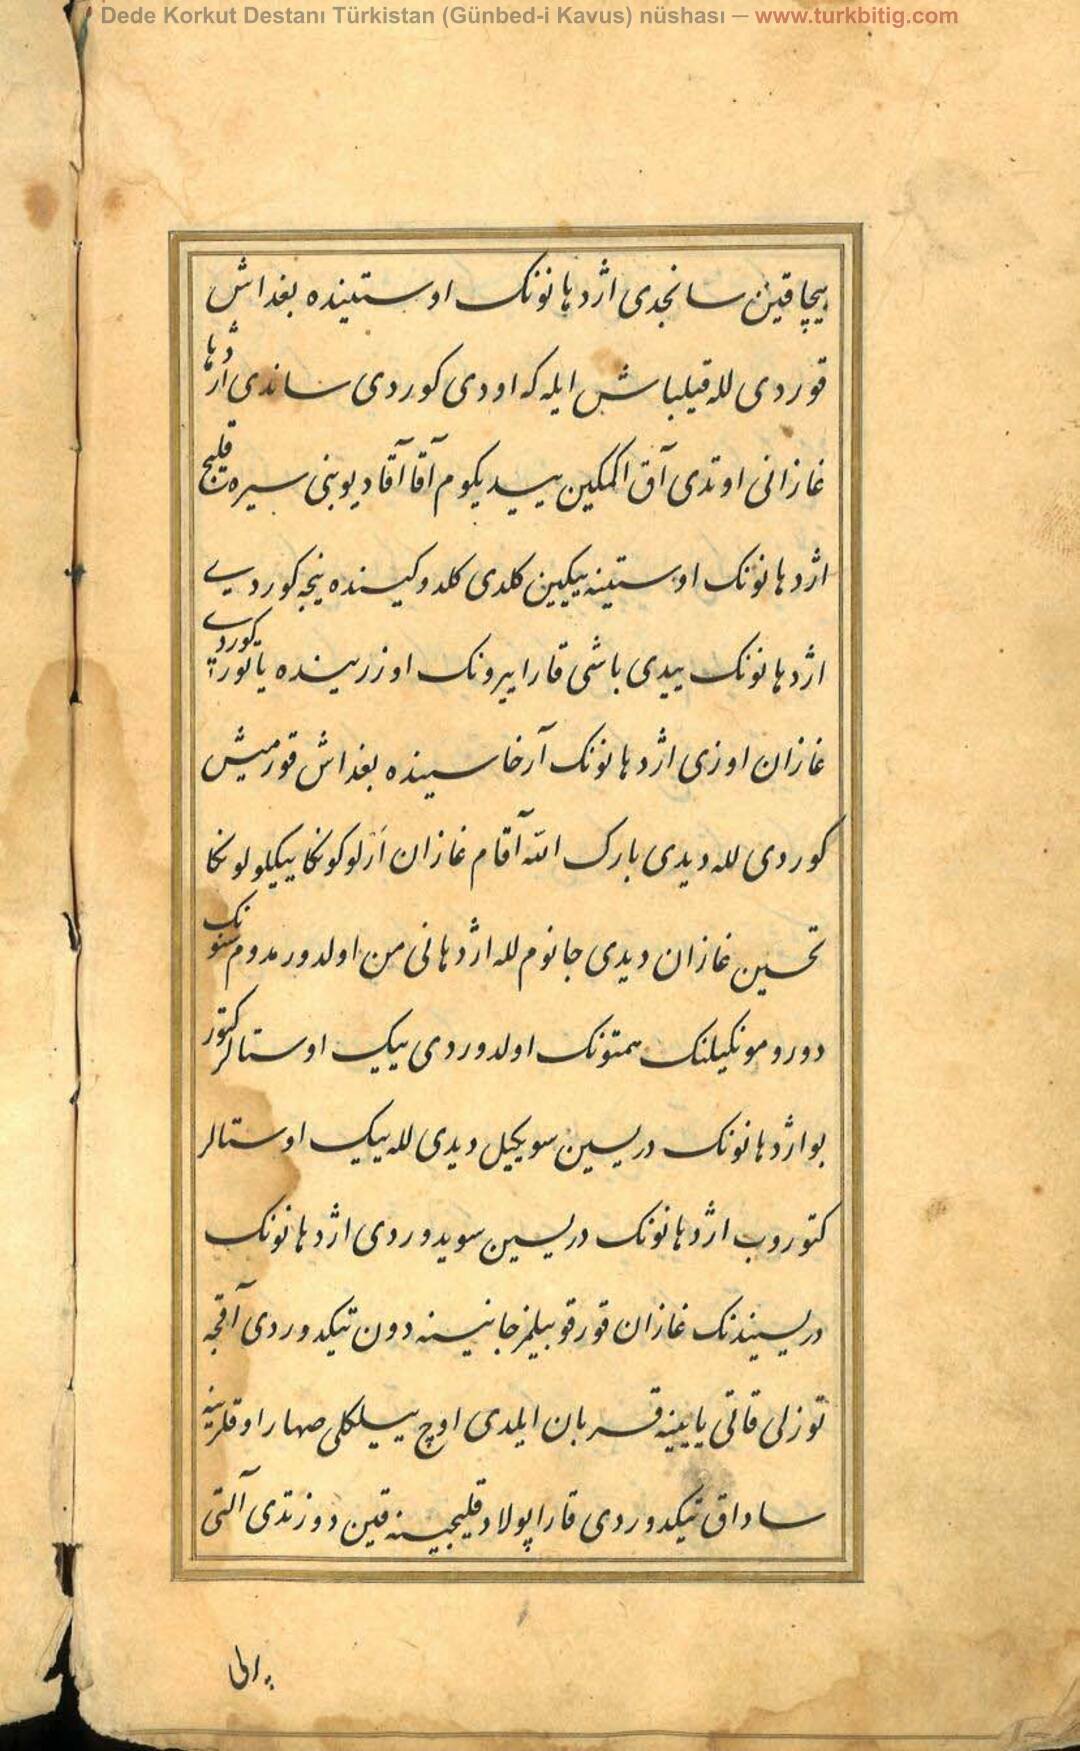 Dede Korkut Destanı Türkistan (Günbed-i Kavus) nüshası — www.turkbitig.com
بیچاقین سانجدی اژدهانونک اوستینده بغداش
قوردی لله قیلباش ایله که اودی کوردی ساندی اژدها
غازانی اوتدی آق اکمکین ییدیکوم آقا آقا دیوبنی سیره قلیج
اژدهانونک اوستینه ییکین کلدی کلدوکینده نیجه کوردی
اژدهانونک ییدی باشی قارا ییرونک اوزرینده یاتور کوردی
غازان اوزی اژدهانونک آرخاسینده بغداش قورمیش
کوردی لله دیدی بارک الله آقام غازان ارلوکونکا ییکیلولونکا
تحسین غازان دیدی جانوم لله اژدهانی من اولدورمدوم سنونک
دورومونکیلنک همتونک اولدوردی ییک اوستالر کتور
بو اژدهانونک دریسین سویکیل دیدی لله ییک اوستالر
کتوروب اژدهانونک دریسین سویدوردی اژدهانونک
دریسیندنک غازان قورقو بیلمز جانینه دون تیکدوردی آقجه
توزلی قاتی یایینه قربان ایلدی اوچ ییلکلی صهار اوقلرینه
ساداق تیکدوردی قارا پولاد قلیجینه قین دوزتدی آلتی
پرالا